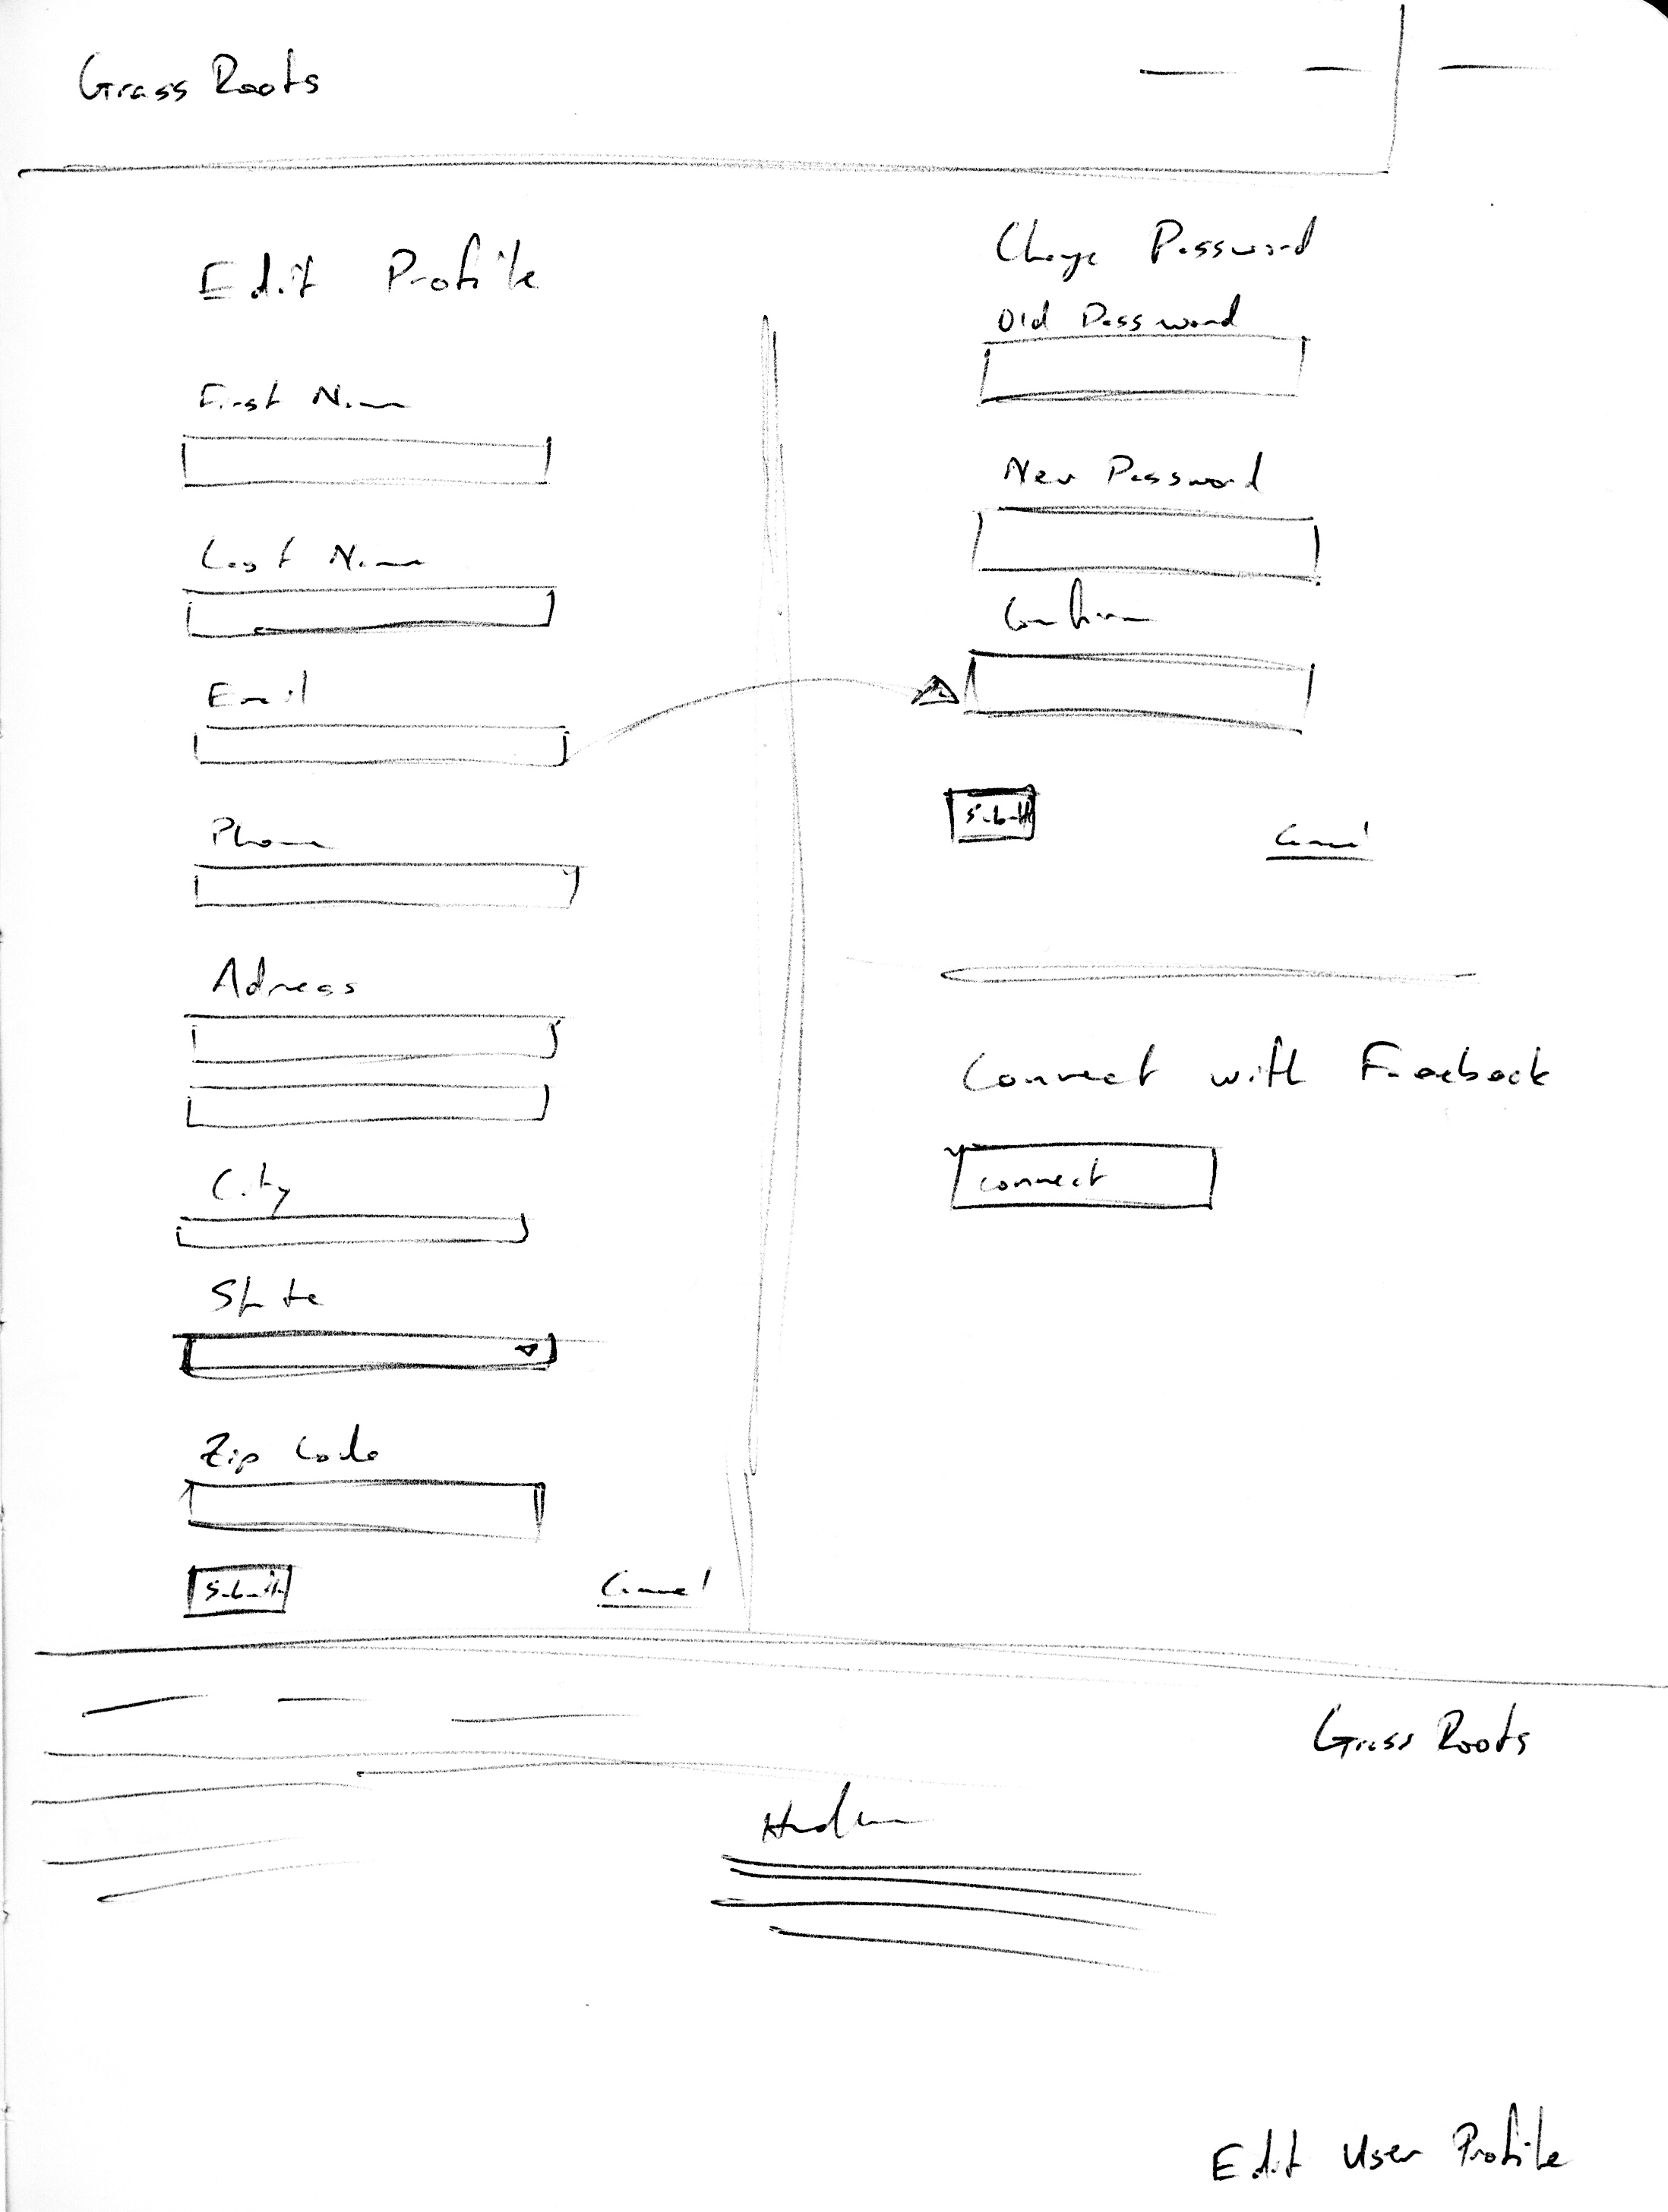 Grass Roots
Edit Profile
First Name
Last Name
Email
Phone
Adress
City
State
Zip Code
Submit
Cancel
Change Password
Old Password
New Password
Confirm
Submit
Cancel
Connect with Facebook
connect
Grass Roots
Edit User Profile